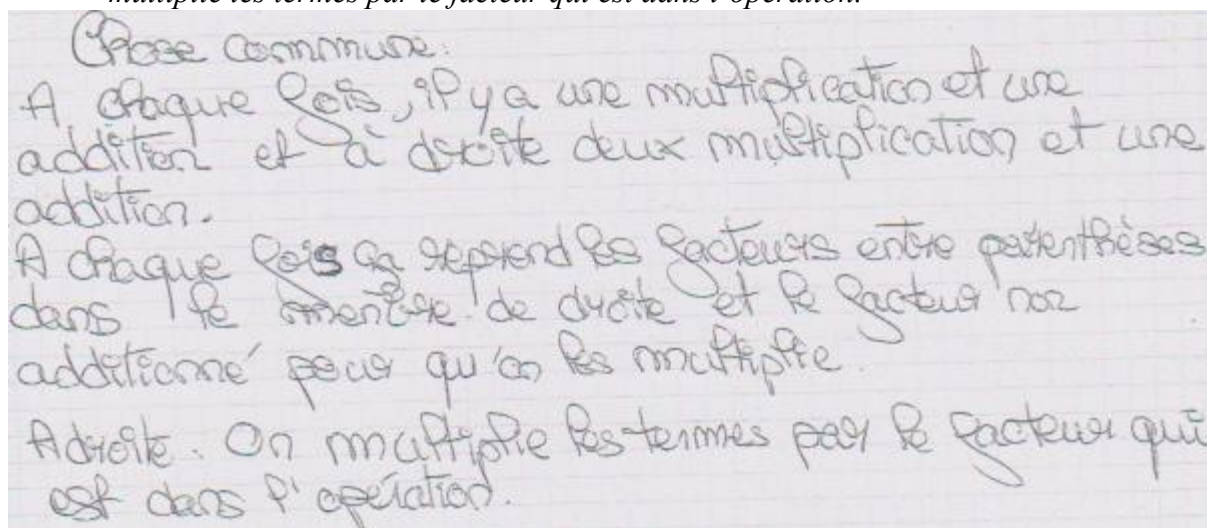 multiplie les termes par le facteur qui est dans l'opération.
Chose commune:
A chaque fois, il y a une multiplication et une
addition et à droite deux multiplication et une
addition.
A chaque fois ça reprend les facteurs entre parenthèses
dans le membre de droite et le facteur non
additionné pour qu'on les multiplie.
A droite. On multiplie les termes par le facteur qui
est dans l'opération.